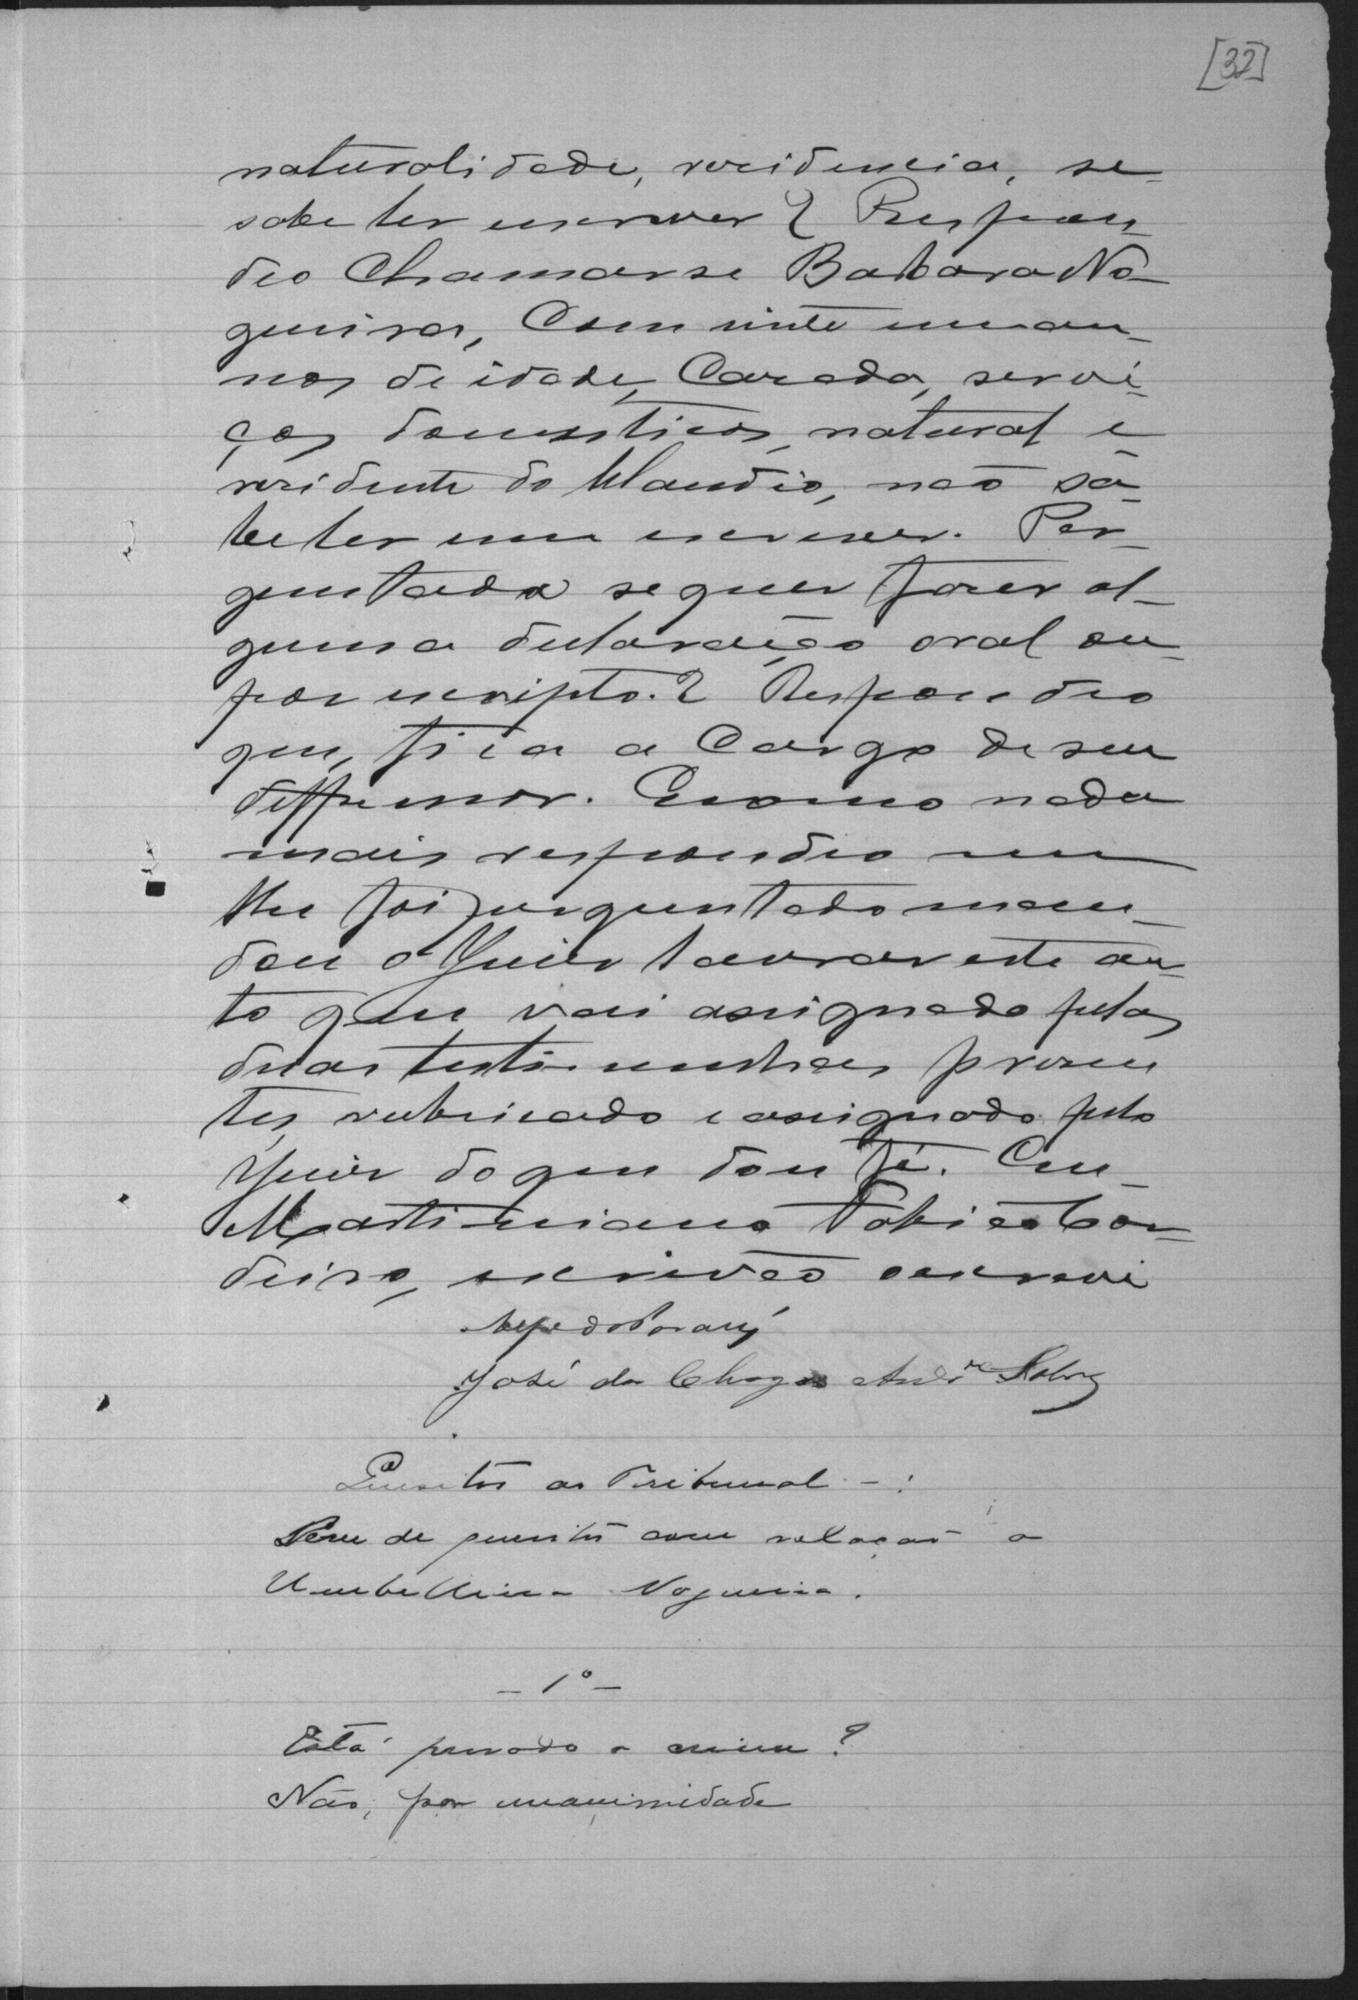 [32]
naturalidade, rezidencia, se
sabe ler escrever? Respon-
deo Chamarse Babara No-
gueira, Com vinte um an-
nos de idade, Cazada, servi-
ços domesticos, natural e
rezidente do Claudio, não sa-
be ler nem escrever. Per-
guntada se quer fazer al-
guma declaração oral ou
por escripto.? Respondeo
que, fica a Cargo de seu
deffensor. E como nada
mais respondeo nem
lhe foi perguntado man-
dou o Juiz lavrar este au-
to que vai assignado pelas
duas testimunhas prezen
tes, rubricado e assignado pelo
Juiz do que dou fé. Eu
Martiniano Tobias Cor-
deiro, escrivão o escrevi
José das Chagas Andre
Quesitos ao Tribunal - :
Serie de quesitos com relação a
Umbellina Nogueira.
- 1º -
Está provado o crime?
Não, por unanimidade